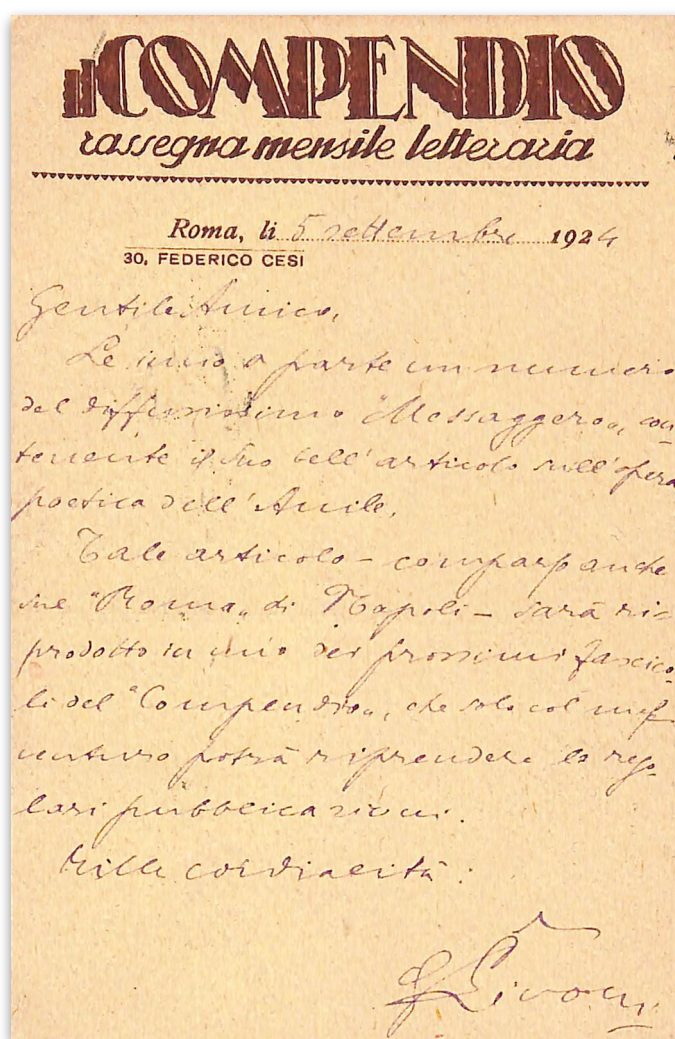 il COMPENDIO
rassegna mensile letteraria
Roma, li 5 settembre 1924
30, FEDERICO CESI
Gentile Amico,
Le invio a parte un numero
del diffusissimo "Messaggero", con
tenente il Suo bell'articolo sull'opera
poetica dell'Anile.
Tale articolo - comparso anche
sul "Roma" di Napoli - sarà ri-
prodotto in uno dei prossimi fascico-
li del "Compendio", che solo col
venturo potrà riprendere le rego-
lari pubblicazioni.
Mille cordialità.